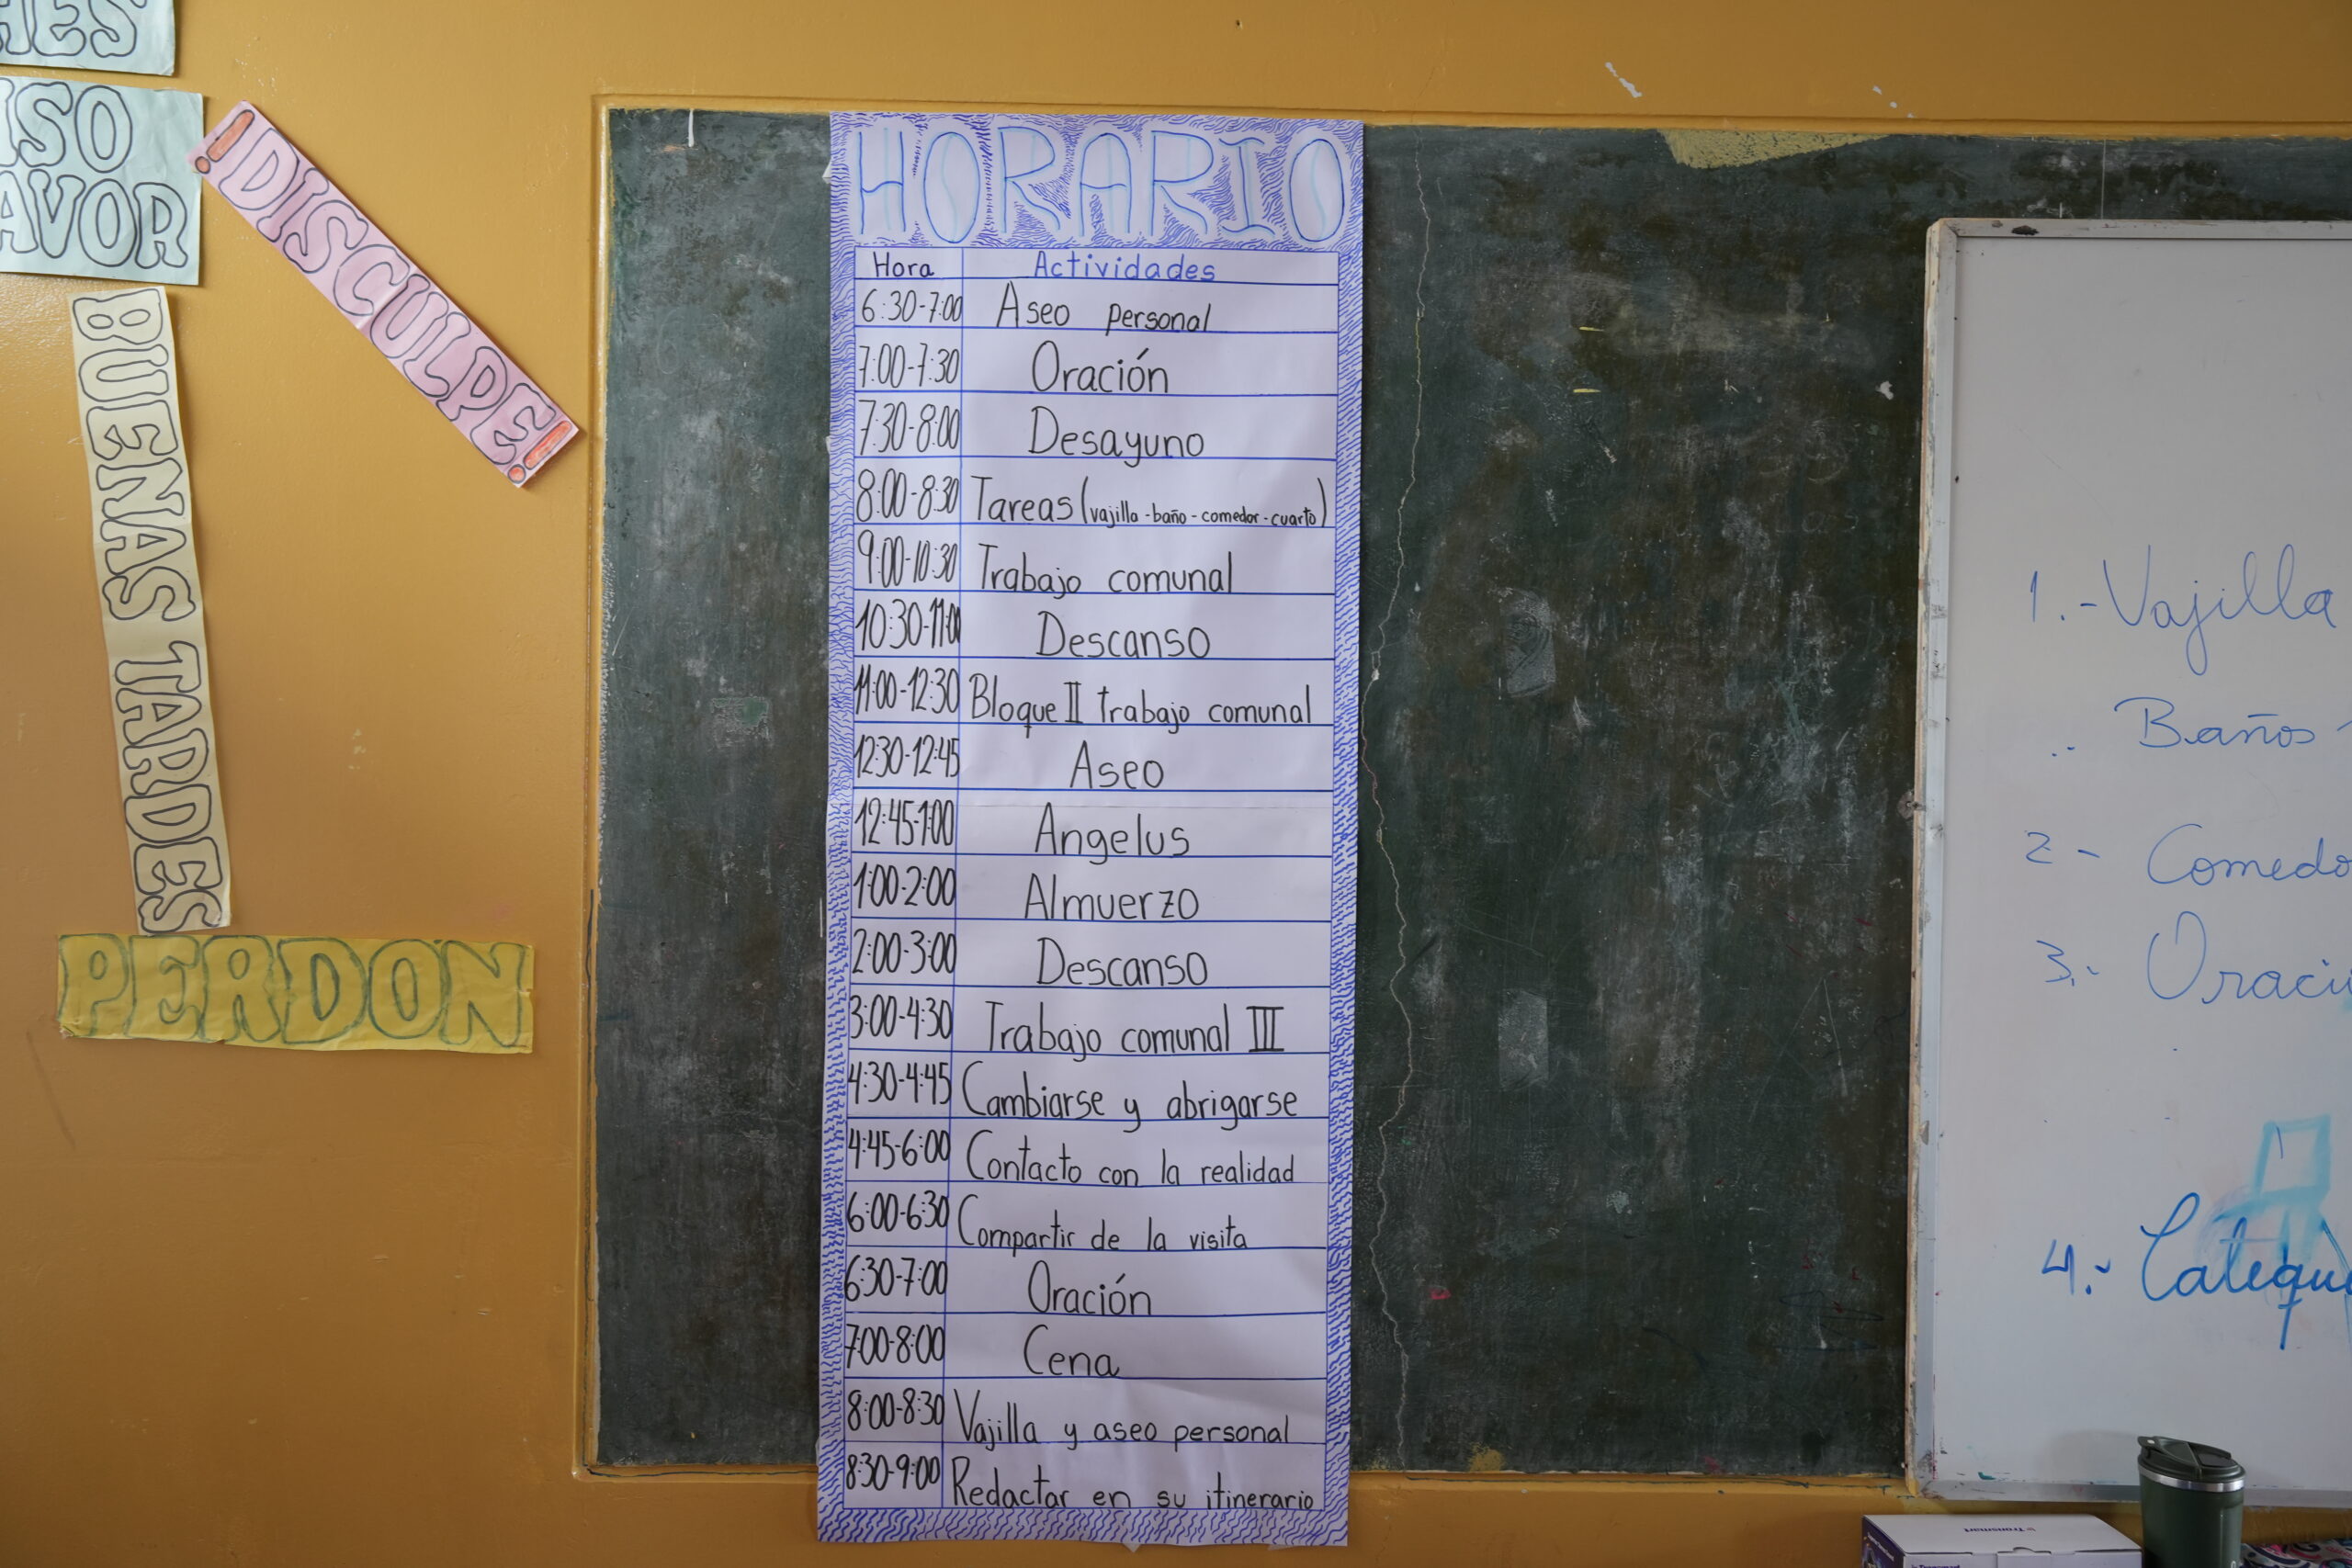 ISO
AVOR
¡DISCULPE!
BUENAS TARDES
PERDON
HORARIO
Hora Actividades
6:30-7:00 Aseo personal
7:00-7:30 Oración
7:30-8:00 Desayuno
8:00-8:30 Tareas (vajilla-baño-comedor-cuarto)
9:00-10:30 Trabajo comunal
10:30-11:00 Descanso
11:00-12:30 Bloque II trabajo comunal
12:30-12:45 Aseo
12:45-1:00 Angelus
1:00-2:00 Almuerzo
2:00-3:00 Descanso
3:00-4:30 Trabajo comunal III
4:30-4:45 Cambiarse y abrigarse
4:45-6:00 Contacto con la realidad
6:00-6:30 Compartir de la visita
6:30-7:00 Oración
7:00-8:00 Cena
8:00-8:30 Vajilla y aseo personal
8:30-9:00 Redactar en su itinerario
1.- Vajilla
Baños
2- Comedo
3.- Oraci
4.- Cateque
Tronsmart